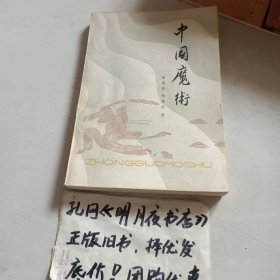 中國魔術
著
ZHONGGUOMOSHU
孔网《明月夜书店》
正版旧书，择优发
底价！团购优惠